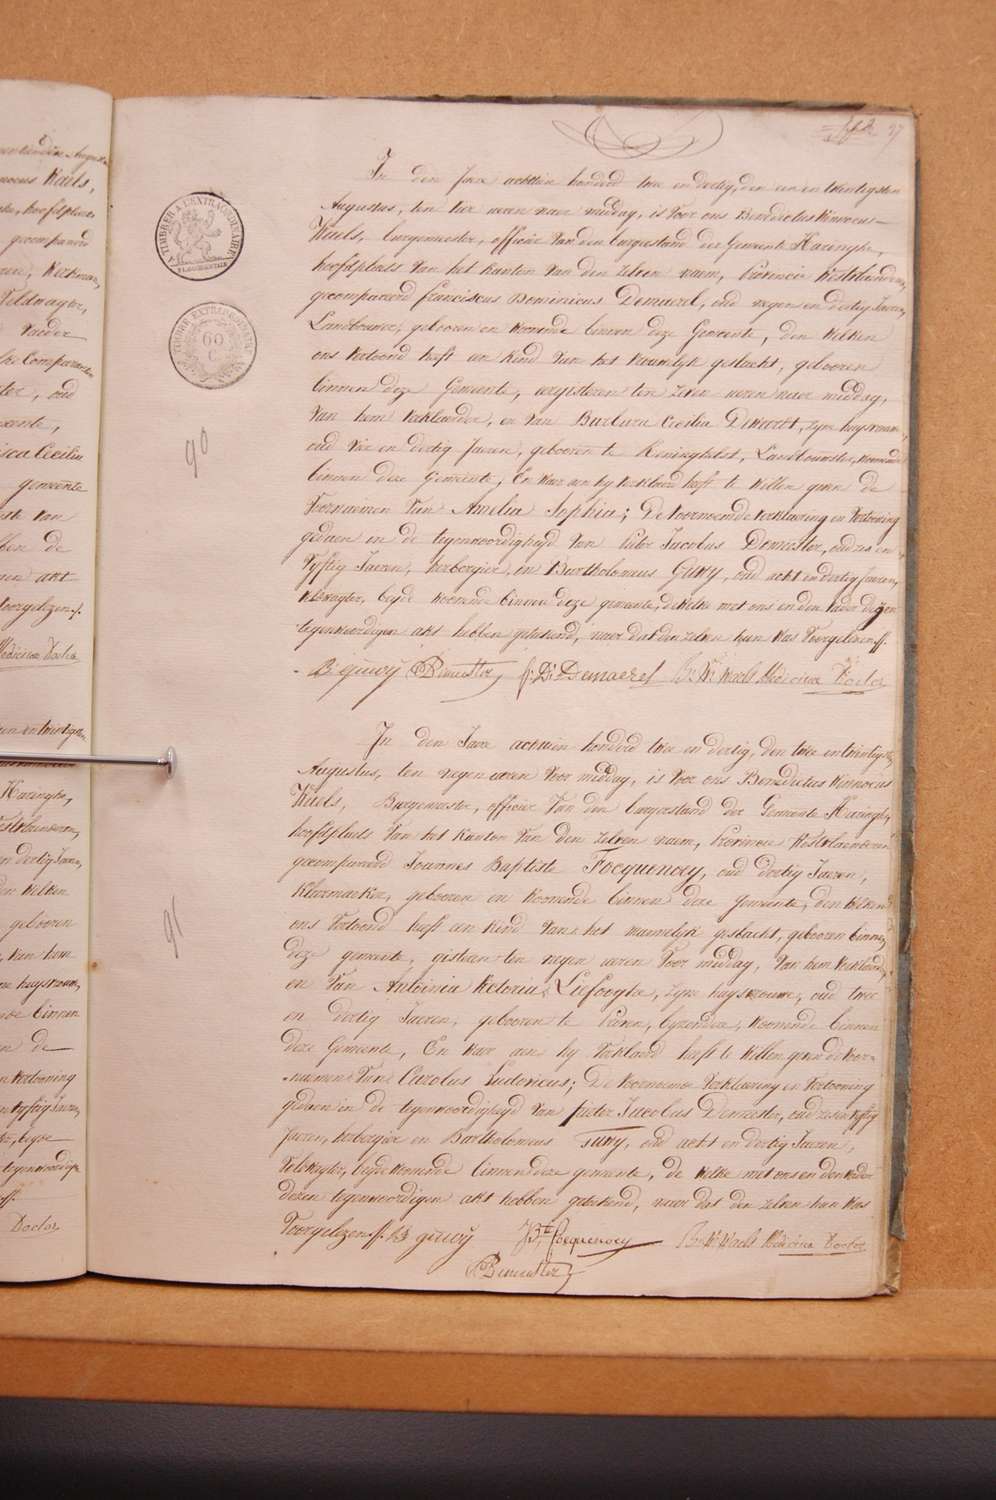 37
TIMBRE A L'EXTRAORDINAIRE
60
C
90
In den Jare achttien honderd twee en dertig, den een en twintigsten
Augustus, ten vier uren naer middag, is voor ons Benedictus Winnocus
Waels, burgemeester, officier van den burgerstand der Gemeente Haringhe,
hoofdplaets van het kanton van den zelven naem, Provincie Westvlaenderen,
gecompareerd franciscus Dominicus Demaerel, oud negen en dertig Jaeren,
Landbouwer, gebooren en woonende binnen deze Gemeente, den welken
ons vertoond heeft een kind van het vrouwelyk geslacht, gebooren
binnen deze Gemeente, eergisteren ten zeven uren naer middag,
van hem verklaerder, en van Barbara Cecilia Dewardt, zyne huysvrouwe,
oud vier en dertig Jaeren, gebooren te Reninghelst, Landbouwster, woonende
binnen deze Gemeente, En waer aen hy verklaerd heeft te willen geven de
Voornaemen van Amelia Sophia; De voornoemde verklaering en vertooning
gedaen in de tegenwoordigheyd van Pieter Jacobus Demester, oud zes en
vyftig Jaeren, herbergier, en Bartholomeus Guwy, oud acht en dertig Jaeren,
veldwagter, beyde woonende binnen deze gemeente, de welke met ons en den vader dezen
tegenwoordigen akt hebben geteekend, naer dat den zelven hun was voorgelezen.
B guwy PDemester f: D: Demaerel B: W: Waels Medicinæ Doctor
91
In den Jare achttien honderd twee en dertig, den twee en twintigsten
Augustus, ten negen uren voor middag, is voor ons Benedictus Winnocus
Waels, Burgemeester, officier van den burgerstand der Gemeente Haringhe,
hoofdplaets van het kanton van den zelven naem, Provincie Westvlaenderen
gecompareerd Joannes Baptiste Focquenoey, oud dertig Jaeren,
kleermaeker, gebooren en woonende binnen deze gemeente, den welken
ons vertoond heeft een kind van het mannelyk geslacht, gebooren binnen
deze gemeente, gisteren ten negen uren voor middag, van hem verklaerder,
en van Antoinia Victoria Liefooghe, zyne huysvrouwe, oud twee
en dertig Jaeren, gebooren te byzondere, woonende binnen
deze Gemeente, En waer aen hy verklaerd heeft te willen geven de voor-
naemen van Carolus Ludovicus; De voornoemde verklaering en vertooning
gedaen in de tegenwoordigheyd van pieter Jacobus Demester, oud zes en vyftig
Jaeren, herbergier en Bartholomeus Guwy, oud acht en dertig Jaeren,
veldwagter, beyde woonende binnen deze gemeente, de welke met ons en den vader
dezen tegenwoordigen akt hebben geteekend, naer dat den zelven hun was
voorgelezen. B guwy J Bte Focquenoey B: W: Waels Medicinæ Doctor
PDemester